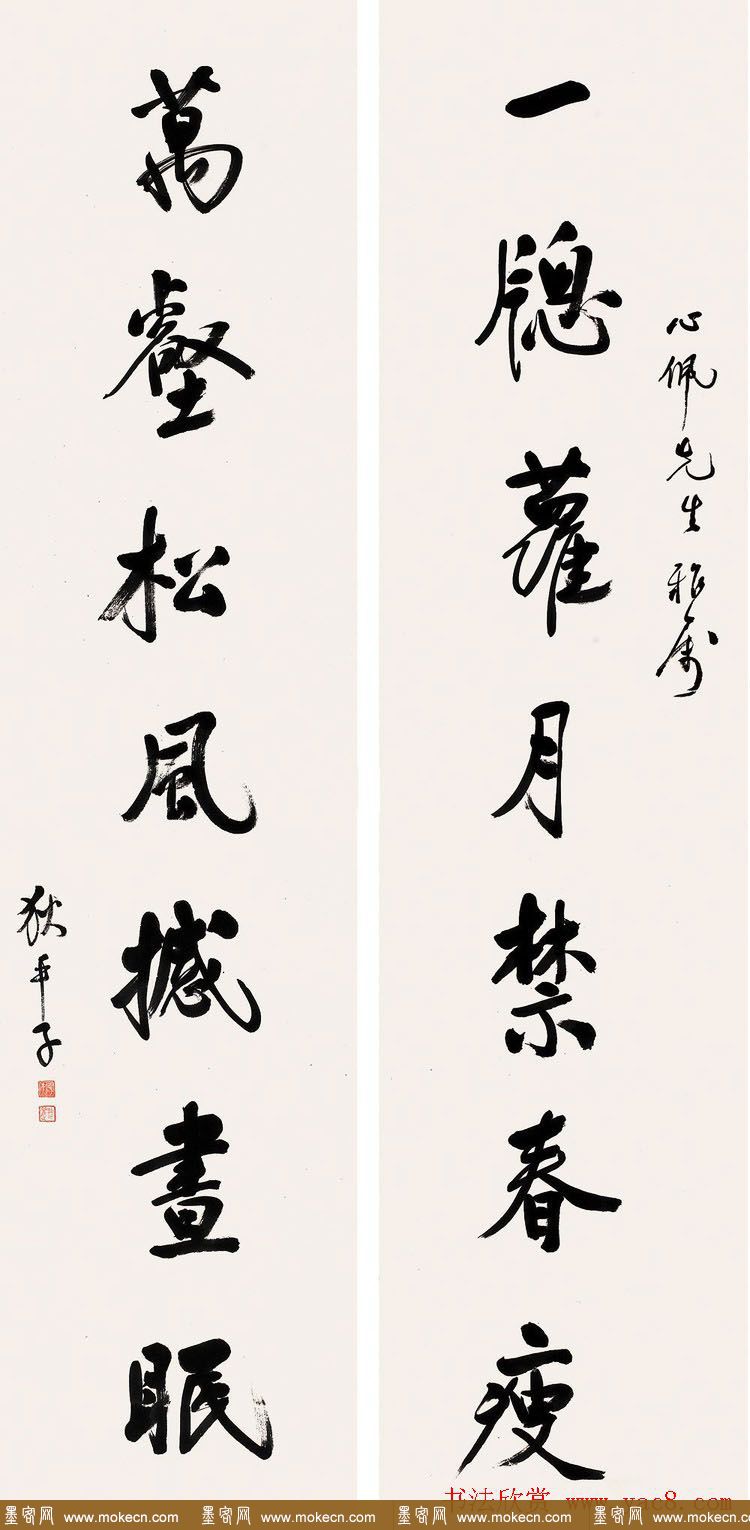 心佩先生雅屬
一牕蘿月禁春瘦
萬壑松風撼晝眠
狄平子
书法欣赏 www.yac8.com
墨客网 www.mokecn.com 墨客网 www.mokecn.com 墨客网 www.mokecn.com 墨客网 www.mokecn.com